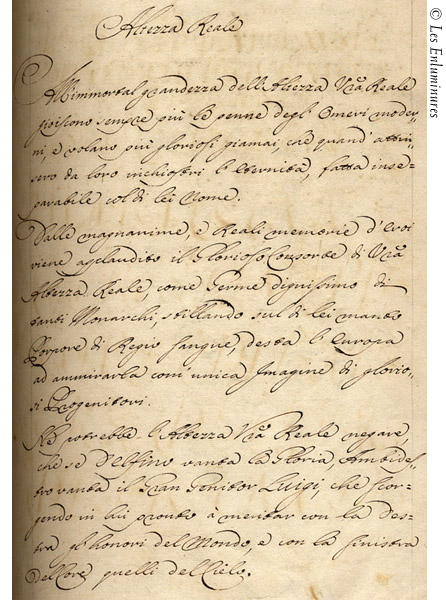 Altezza Reale
All'immortal grandezza dell'Altezza V.ra Reale
gioiscono sempre più le penne degl'Omeri moder-
ni e volano più gloriosi giamai, che quand'attin-
sero da loro inchiostri l'Eternità, fatta inse-
parabile col di lei Nome.
Dalle magnanime, e Reali memorie d'Eroi
viene applaudito il Glorioso Consorte di V.ra
Altezza Reale, come Germe dignissimo di
tanti Monarchi, stillando sul di lei manto
Porpore di Regio sangue, desta l'Europa
ad ammirarla com'unica Imagine di glorio-
si Progenitori.
Ne potrebbe l'Altezza V.ra Reale negare,
che se Delfino vanta la Gloria, Ambide-
tro vanta il Gran Genitor Luigi, che scor-
gendo in lui pronto à meritar con la des-
tra gl'honori del Mondo, e con la sinistra
del Core quelli del Cielo.
© Les Enluminures